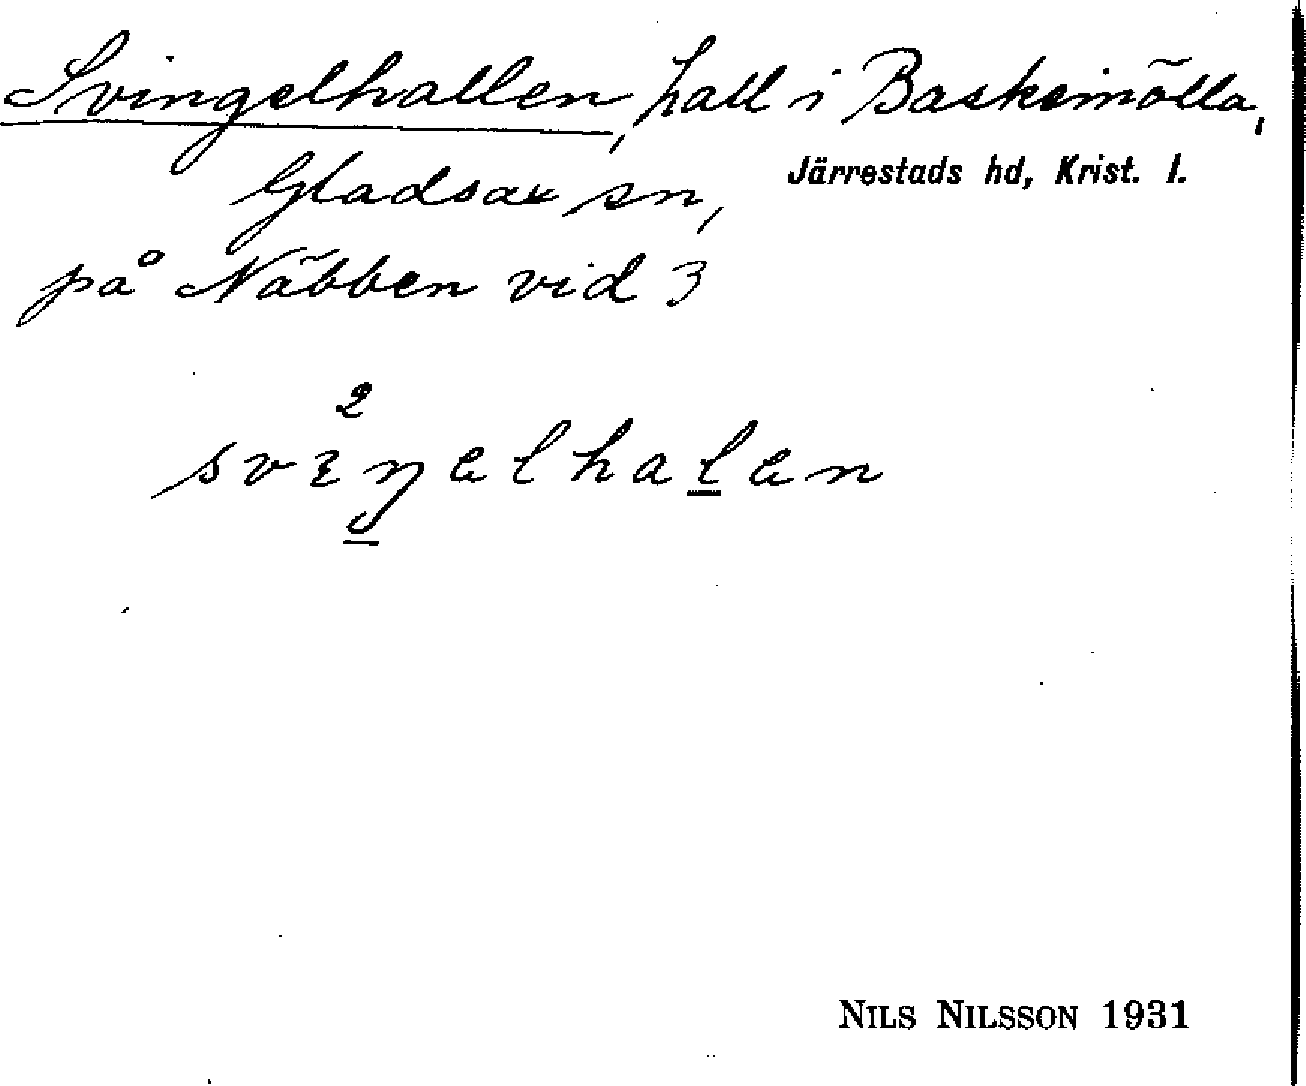 Svingelhallen, hall i Baskemölla,
Gladsax sn, Järrestads hd, Krist. l.
på Näbben vid 3
2
NILS NILSSON 1931